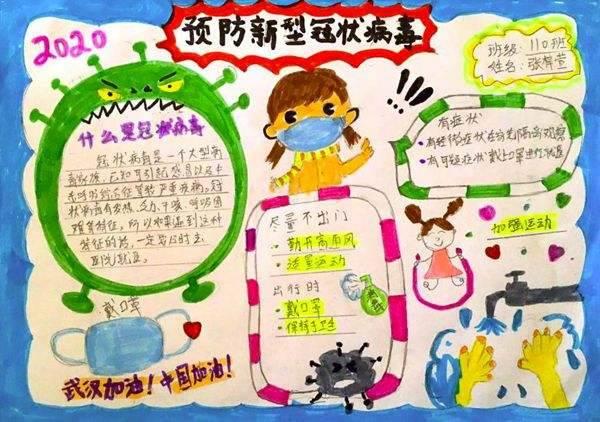 2020
预防新型冠状病毒
班级：110班
姓名：张
什么是冠状病毒
冠状病毒是一个大型病
毒家族，已知可引起感冒以及中
东呼吸综合征等较严重疾病。冠
状病毒有发烧、乏力、干咳、呼吸困
难等特征，所以如果遇到这种
特征的话，一定要及时去
医院就医。
尽量不出门
·勤开窗通风
·适量运动
出行时
·戴口罩
·保持手卫生
有症状
·有轻微症状在家先隔离观察
·有可疑症状戴上口罩
加强运动
戴口罩
武汉加油！中国加油！